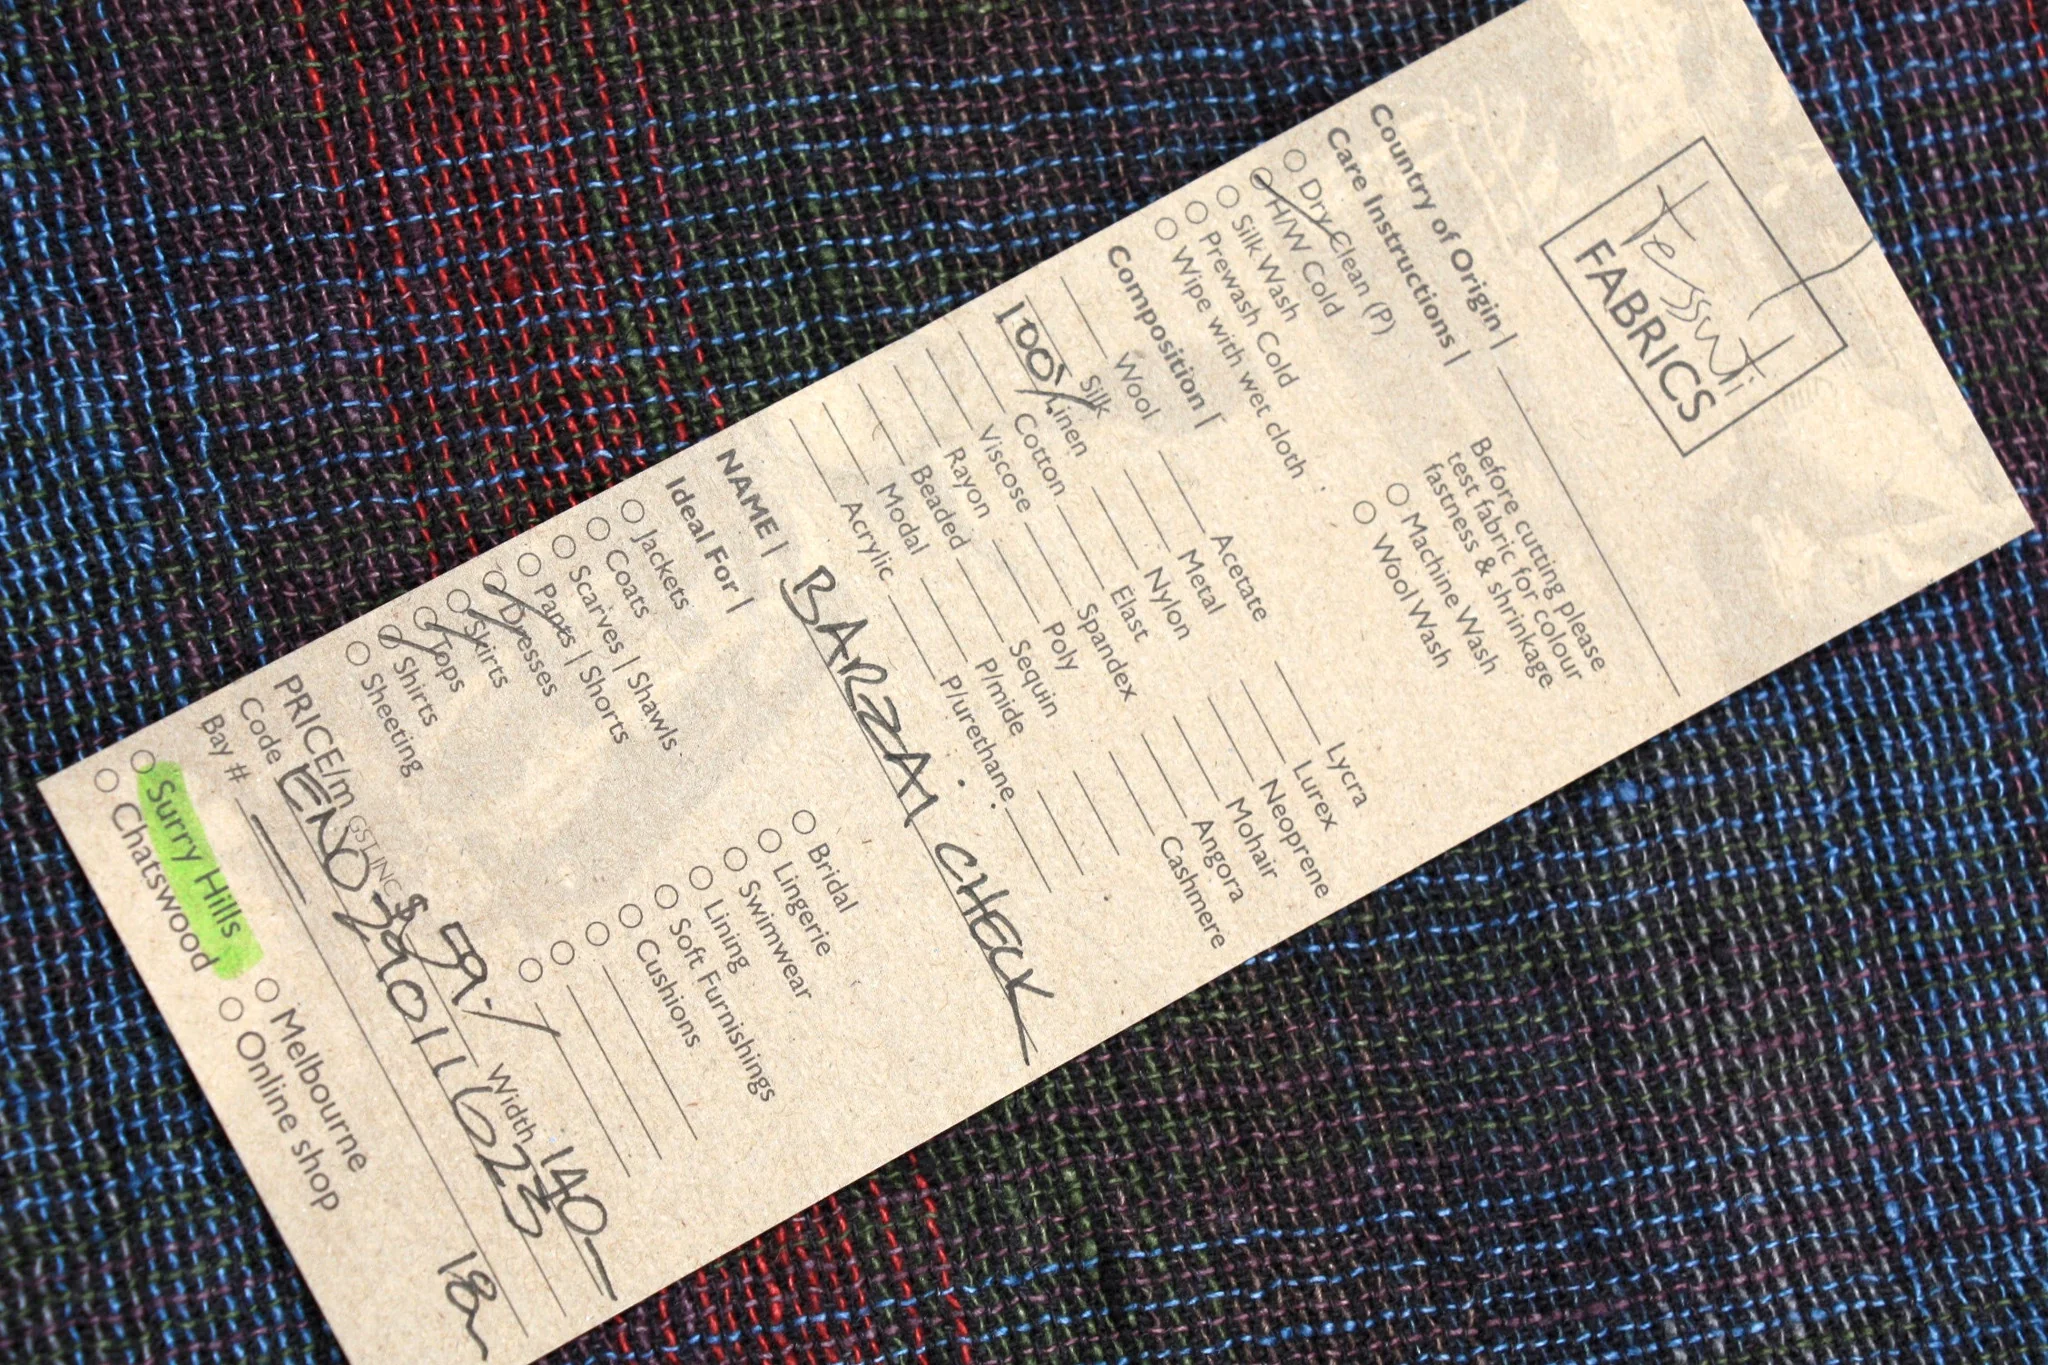 Tessuti
FABRICS
Country of Origin |
Care Instructions |
Dry Clean (P)
H/W Cold
Silk Wash
Prewash Cold
Wipe with wet cloth
Before cutting please
test fabric for colour
fastness & shrinkage
Machine Wash
Wool Wash
Composition |
Wool
Silk
100% Linen
Cotton
Viscose
Rayon
Beaded
Modal
Acrylic
Acetate
Metal
Nylon
Elast
Spandex
Poly
Sequin
P/mide
P/urethane
Lycra
Lurex
Neoprene
Mohair
Angora
Cashmere
NAME | BARZAI CHECK
Ideal For |
Jackets
Coats
Scarves | Shawls
Pants | Shorts
Dresses
Skirts
Tops
Shirts
Sheeting
Bridal
Lingerie
Swimwear
Lining
Soft Furnishings
Cushions
PRICE/m GST INC $ 59.- Width 140-
Code
Bay #
18m
Surry Hills
Chatswood
Melbourne
Online shop